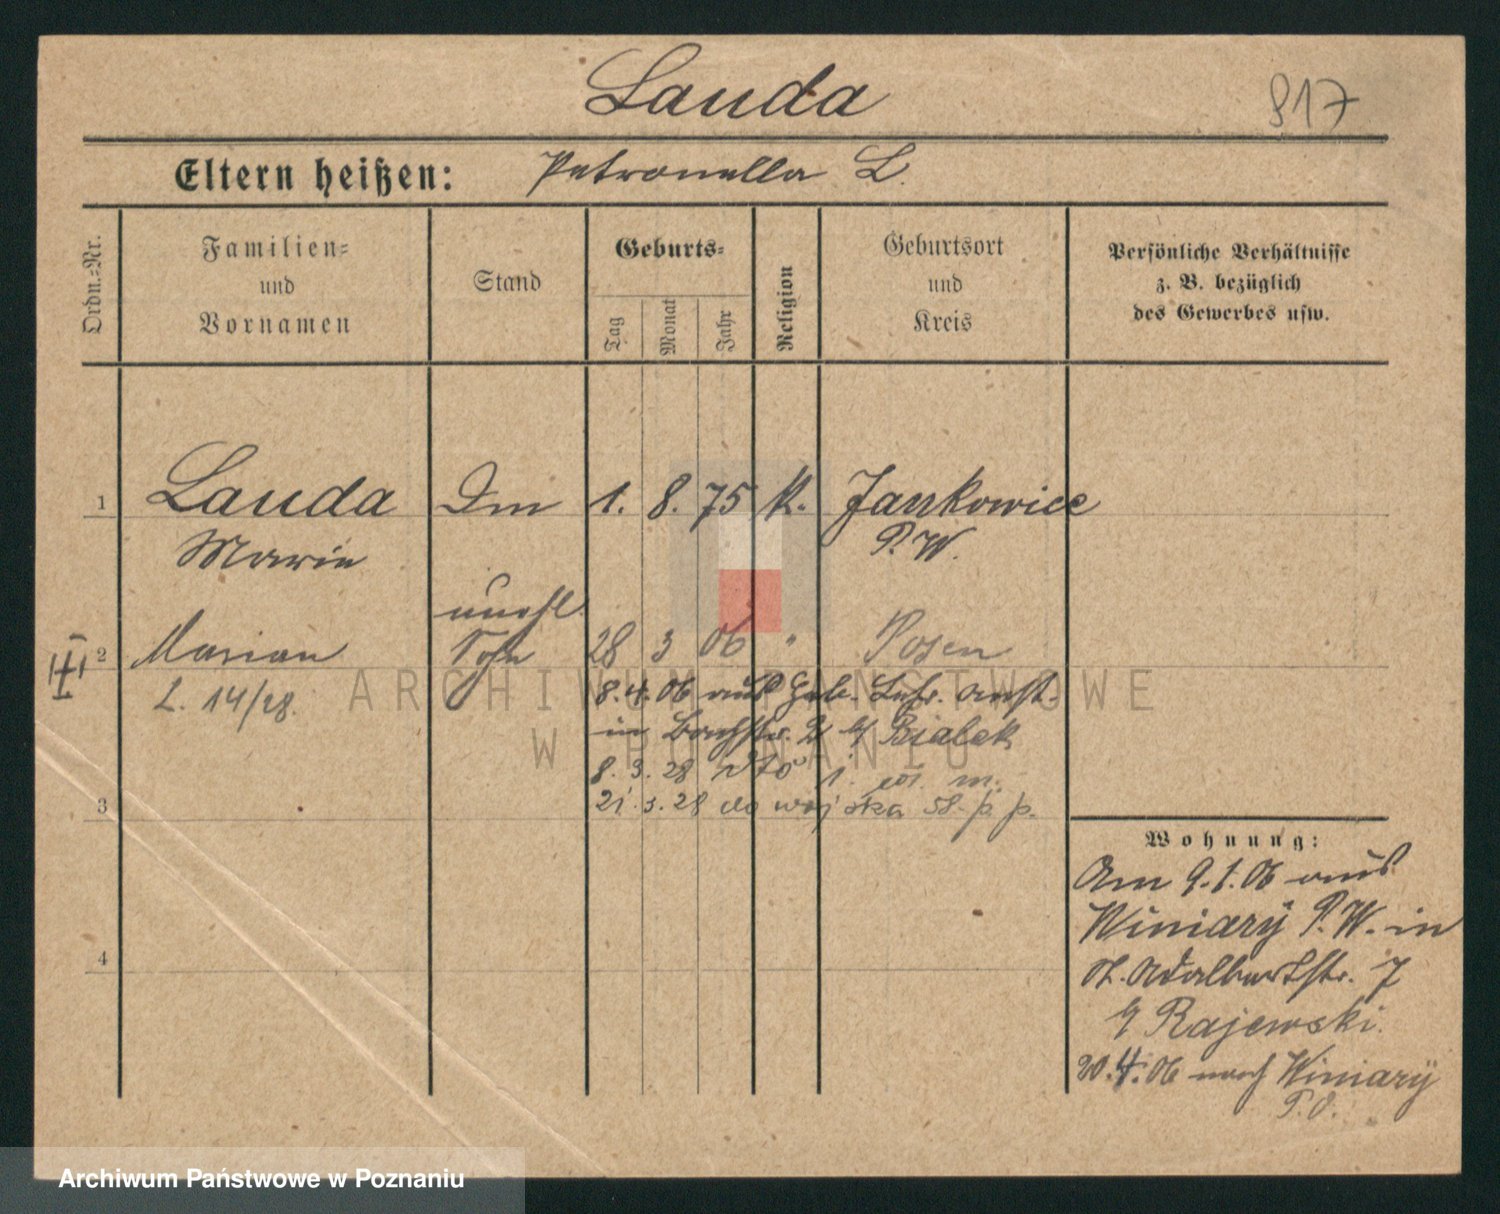 Lauda
817
Eltern heißen: Petronella L.
Ordn.-Nr.
Familien- und Vornamen
Stand
Geburts-
Tag
Monat
Jahr
Religion
Geburtsort und Kreis
Persönliche Verhältnisse
z. B. bezüglich
des Gewerbes usw.
1 Lauda 1. 8. 75 K. Jankowice
Marie P. W.
unehl.
2 Marian Sohn 28 3 06 " Posen
L. 14/28.
8. 4. 06 aus Geb. Lehr. Anst.
in Bachstr. b/ Bialek
8. 3. 28
21. 3. 28 do wojska 58. p. p.
3
4
Wohnung:
Am 9.1.06 aus
Winiary P. W. in
St. Adalbertstr. 7
b/ Rajewski.
20.4.06 nach Winiary
P. O.
ARCHIWUM PAŃSTWOWE
W POZNANIU
Archiwum Państwowe w Poznaniu